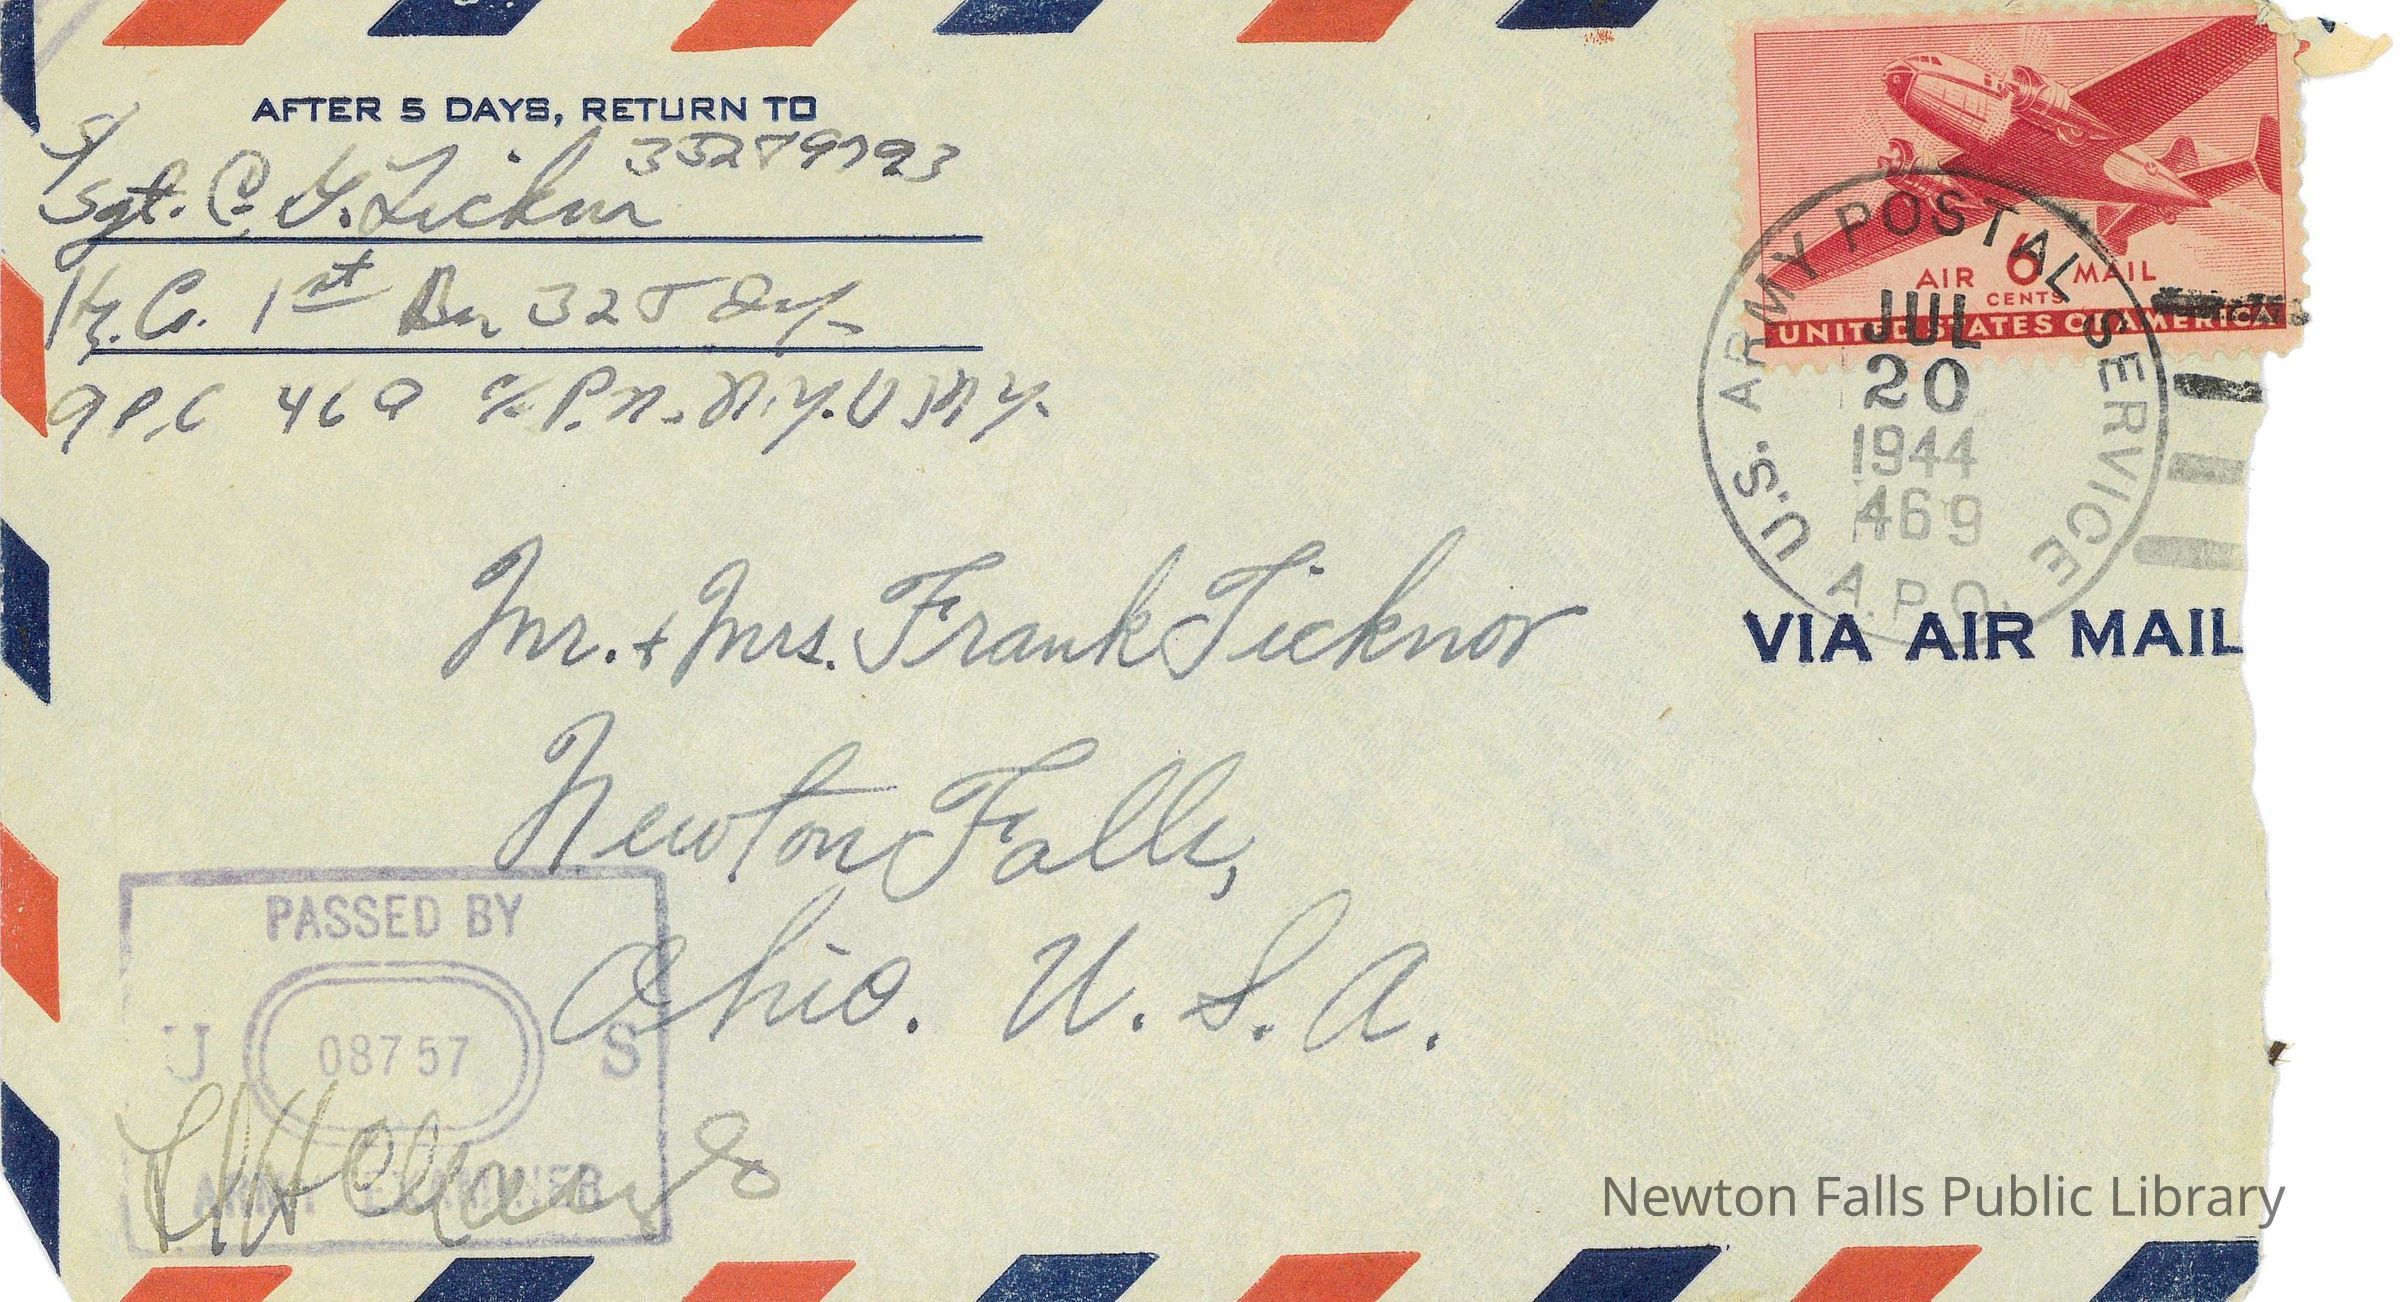 AFTER 5 DAYS, RETURN TO
S/Sgt. C. G. Ticknor 33279793
Hq. Co. 1st Bn 325 Inf.
APO 469 c/o P.M. N.Y. N.Y.
AIR 6 MAIL
CENTS
UNITED STATES OF AMERICA
U.S. ARMY POSTAL SERVICE
JUL
20
1944
469
A.P.O.
VIA AIR MAIL
Mr. + Mrs. Frank Ticknor
Newton Falls,
Ohio. U. S. A.
PASSED BY
U 08757 S
ARMY EXAMINER
Newton Falls Public Library